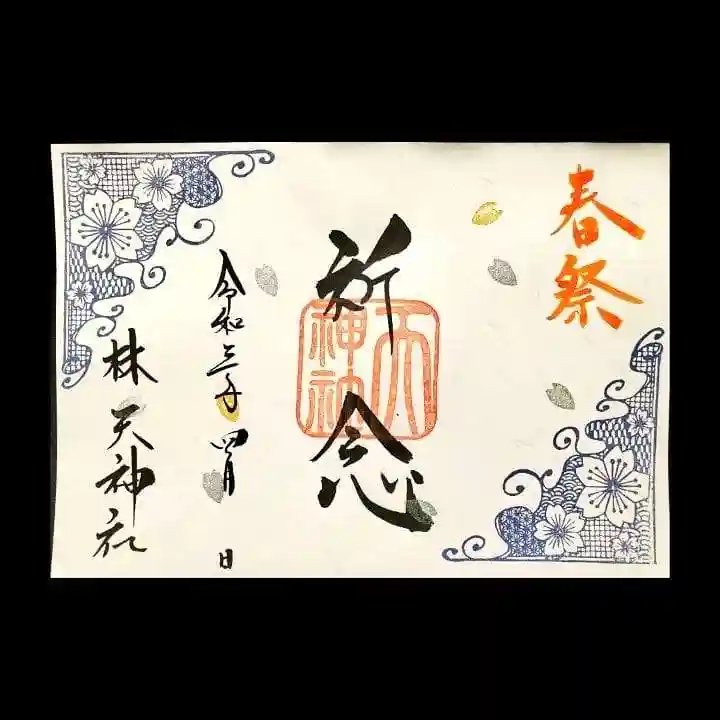 春祭
祈念
天神社
令和三年四月 日
林天神社